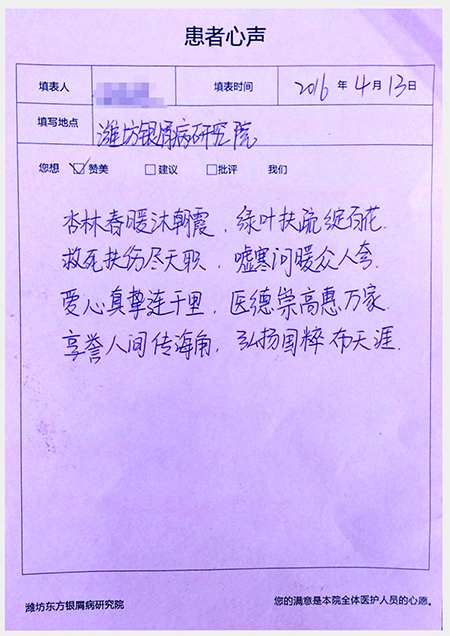 患者心声
填表人 填表时间 2016 年 4 月 13 日
填写地点 潍坊银屑病研究院
您想 ☑赞美 □建议 □批评 我们
杏林春暖沐朝霞，绿叶扶疏绽百花.
救死扶伤尽天职，嘘寒问暖众人夸.
爱心真挚连千里，医德崇高惠万家.
享誉人间传海角，弘扬国粹布天涯.
潍坊东方银屑病研究院 您的满意是本院全体医护人员的心愿。